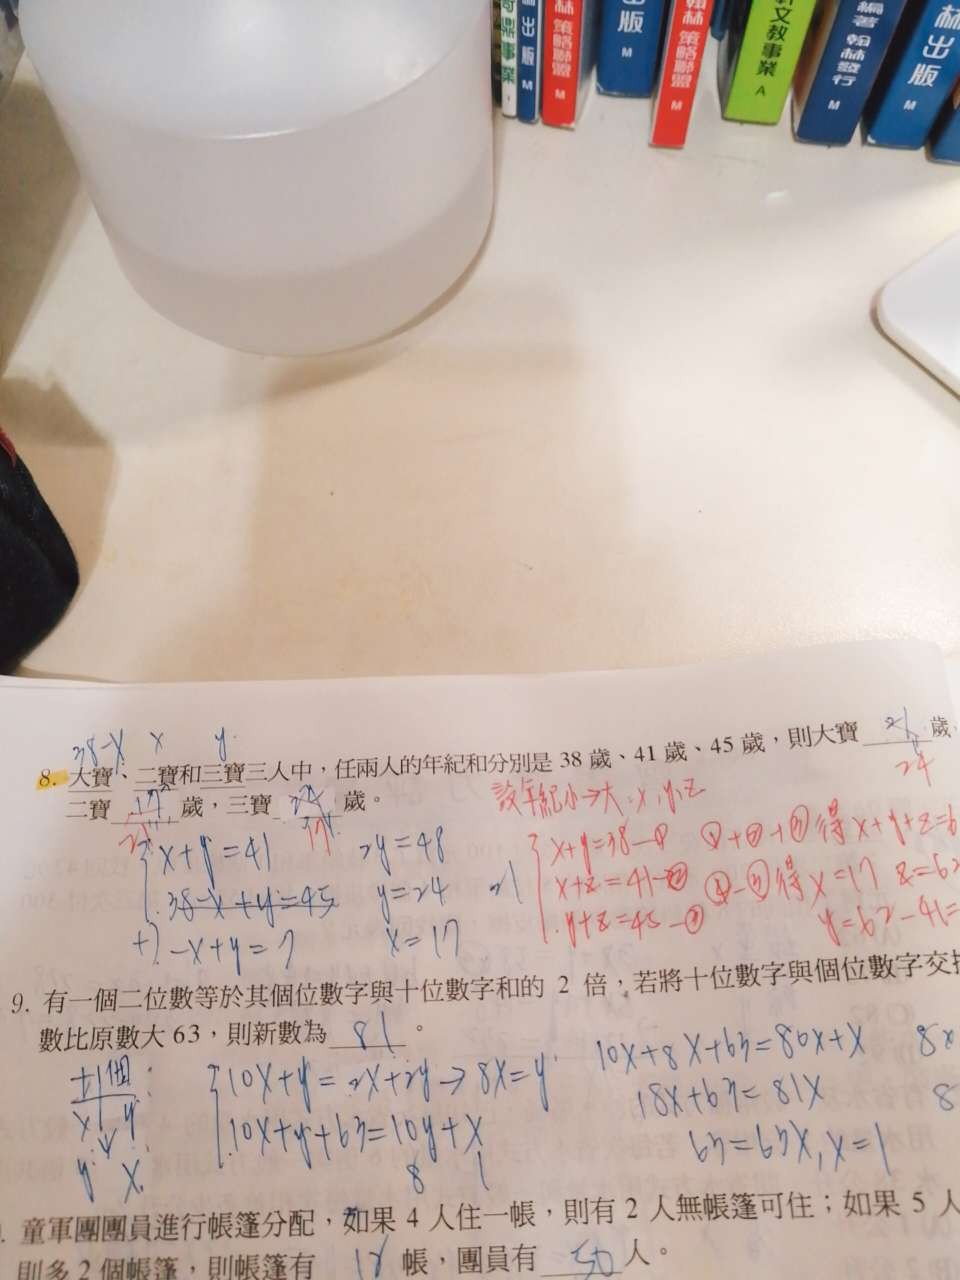 出版 M
林 策略聯盟 M
出版 M
翰林 策略聯盟 M
新文教事業 A
編著 翰林發行 M
林出版 M
38-x x y
8. 大寶、二寶和三寶三人中，任兩人的年紀和分別是 38 歲、41 歲、45 歲，則大寶 歲，
24
二寶 17 歲，三寶 歲。
設年紀小→大:x,y,z
x+y=41
2y=48
x+y=38-①
①+②+③得x+y+z=6
38-x+y=45
y=24
21
x+z=41-②
①-③得x=17 z=62
y+z=45-③
y=62-41=
+) -x+y=7
x=17
9. 有一個二位數等於其個位數字與十位數字和的 2 倍，若將十位數字與個位數字交換
數比原數大 63，則新數為 81 。
十個:
10x+y=2x+2y→8x=y
10x+8x+63=80x+x
8x
x y
10x+y+63=10y+x
18x+63=81x
8
y x
8 1
63=63x, x=1
童軍團團員進行帳篷分配，如果 4 人住一帳，則有 2 人無帳篷可住；如果 5 人
則多 2 個帳篷，則帳篷有 12 帳，團員有 50 人。